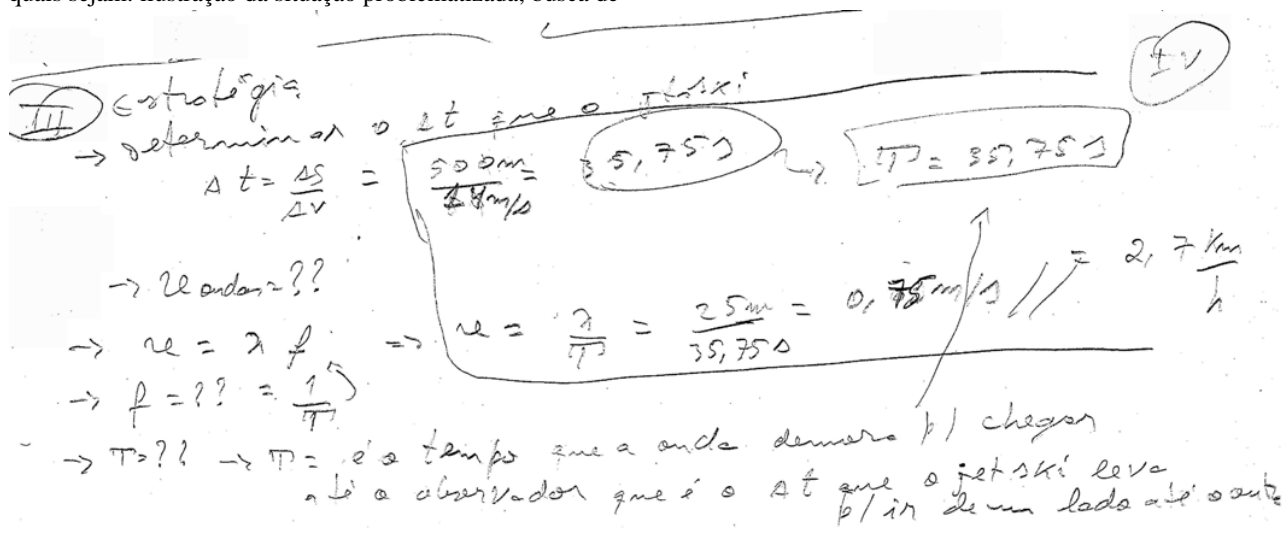 quais sejam: ilustração da situação problematizada, busca de
III Estratégia IV
→ Determinar o Δt que o jetski
Δt = ΔS/ΔV = 500m/14m/s = 35,75s → T = 35,75s
→ v ondas = ??
→ v = λ f => v = λ/T = 25m/35,75s = 0,75m/s // = 2,7 km/h
→ f = ?? = 1/T
→ T=?? → T = é o tempo que a onda demora p/ chegar
até o observador que é o Δt que o jetski leva
p/ ir de um lado até o outro